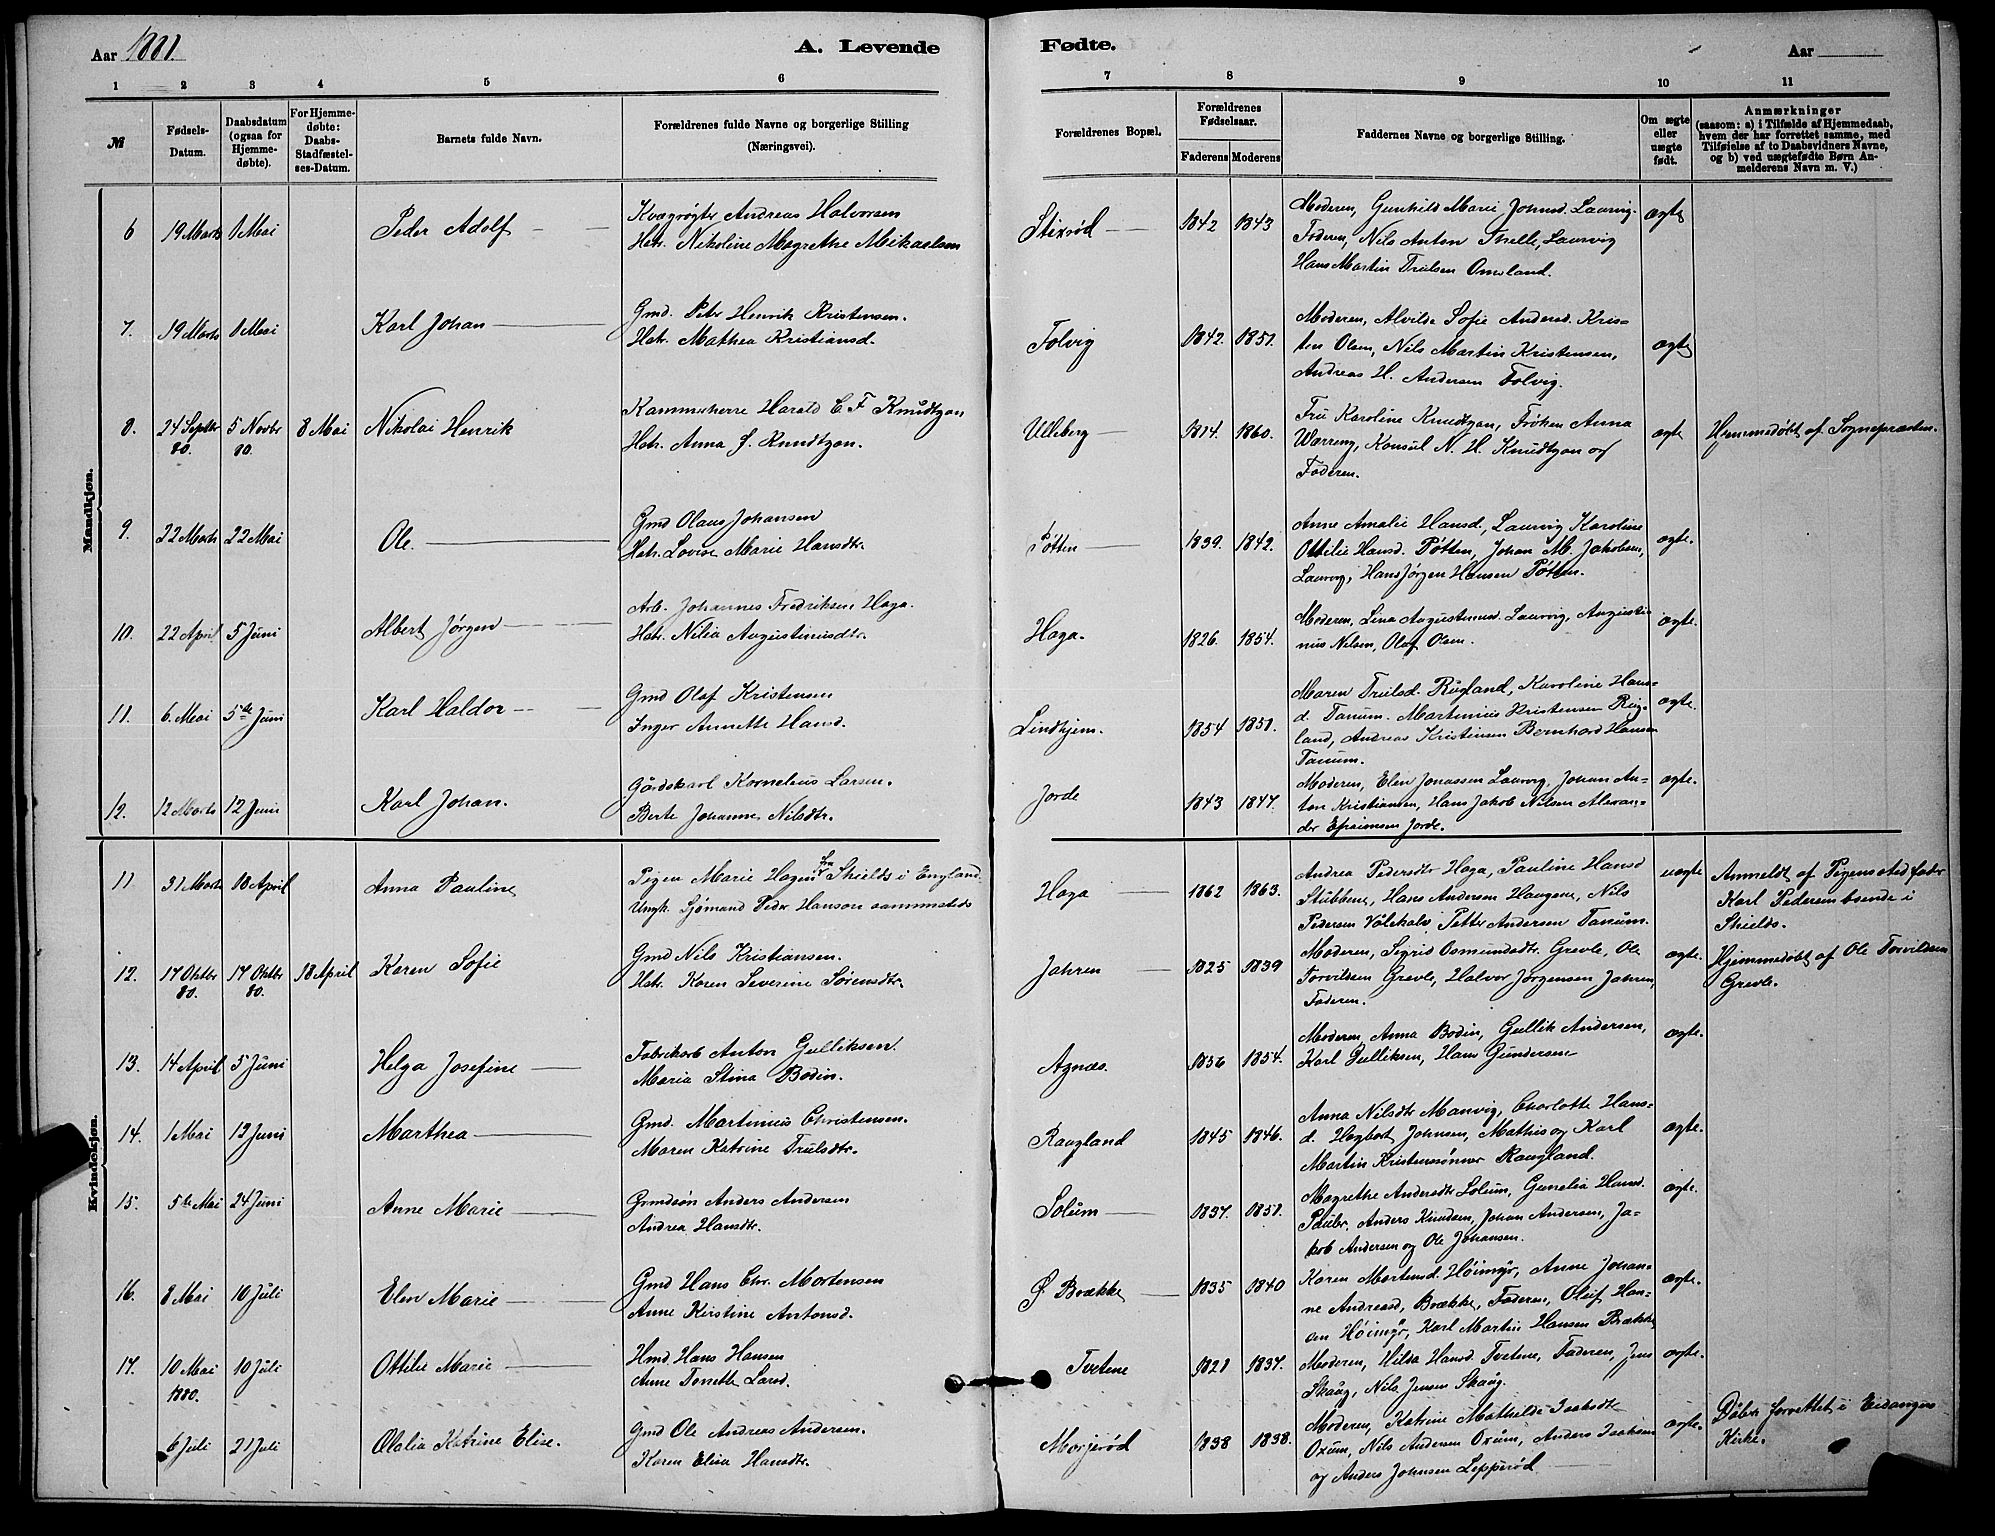 Aar 1881.
A. Levende
Fødte.
Aar
1 2 3 4 5 6 7 8 9 10 11
№
Fødsels-Datum.
Daabsdatum (ogsaa for Hjemmedøbte).
For Hjemmedøbte: Daabs-Stadfæstelses-Datum.
Barnets fulde Navn.
Forældrenes fulde Navne og borgerlige Stilling
(Næringsvei).
Forældrenes Bopæl.
Forældrenes Fødselsaar.
Faderens Moderens
Faddernes Navne og borgerlige Stilling.
Om ægte eller uægte født.
Anmærkninger
(saasom: a) i Tilfælde af Hjemmedaab,
hvem der har forrettet samme, med
Tilføielse af to Daabsvidners Navne,
og b) ved uægtefødte Børn Anmelderens Navn m. V.)
Mandkjøn.
6 19 Marts 1 Mai Peder Adolf
Kvægrøgter Andreas Halvorsen
Hstr. Nikoline Magrethe Mikaelsen
Stixrød 1842 1843
Moderen, Gunhild Marie Johnsd. Laurvig.
Faderen, Nils Anton Thelle, Laurvig
Hans Martin Trulsen Omsland.
ægte
7. 19 Marts 1 Mai Karl Johan
Gmd. Peter Henrik Kristensen.
Hstr. Mathea Kristiansd.
Tolvig 1842. 1851.
Moderen, Alvilde Sofie Andersd. Kris-
ten Olsen, Nils Martin Kristensen,
Andreas H. Andersen Tolvig.
ægte
8. 24 Septbr 80. 5 Novbr 80. 8 Mai Nikolai Henrik
Kammerherre Harald C F Knudtzon
Hstr. Anna S. Knudtzon.
Ulleberg 1814. 1860.
Fru Karoline Knudtzon, Frøken Anna
Warreng, Konsul N. H. Knudtzon og
Faderen.
ægte Hjemmedøbt af Sognepræsten.
9. 22 Marts 22 Mai Ole.
Gmd Olaus Johansen
Hstr. Lovise Marie Hansdtr.
Pøtten 1839. 1842.
Anne Amalie Hansd., Laurvig Karoline
Ottilie Hansd. Pøtten, Johan M. Jakobsen,
Laurvig, Hans Jørgen Hansen Pøtten.
ægte.
10. 22 April 5 Juni Albert Jørgen
Arb. Johannes Fredriksen Haga.
Hstr. Nilia Augustinusdtr.
Haga. 1826. 1854.
Moderen, Lina Augustinusd. Laurvig, Augusti
nus Nilsen, Olaf Olsen.
ægte.
11. 6. Mai 5te Juni Karl Haldor
Gmd Olaf Kristensen
Inger Annette Hansd.
Lindhjem. 1854 1851.
Maren Trulsd. Rugland, Karoline Hans-
d. Tanum. Martinius Kristensen Rug-
land, Andreas Kristensen Bernhard Hansen
Tanum.
ægte.
12. 12 Marts 12 Juni Karl Johan.
Gårdskarl Kornelius Larsen.
Berte Johanne Nilsdtr.
Jorde 1843 1847.
Moderen, Elen Jonassen Laurvig, Johan An-
ton Kristiansen, Hans Jakob Nilsen Alexan-
der Efraimsen Jorde.
ægte.
Kvindekjøn.
11 31 Marts 18 April Anna Pauline
Pigen Marie Hagen fra Shields i England.
Ungk. Sjømand Peder Hanson sammesteds
Haga 1862 1863.
Andrea Pedersdtr Haga, Pauline Hansd
Stubbene, Hans Andersen Haugene, Nils
Pedersen Vålekalv Petter Andersen Tanum.
uægte Anmeldt af Pigens stedfader
Karl Pedersen boende i
Shields.
12. 17 Oktbr 80. 17 Oktbr 80. 18 April Karen Sofie
Gmd Nils Kristiansen.
Hstr. Karen Severine Sørensdtr.
Jahren 1825 1839
Moderen, Sigrid Osmundsdtr. Grevle, Ole
Torvildsen Grevle, Halvor Jørgensen Jahren,
Faderen.
ægte. Hjemmedøbt af Ole Torvildsen
Grevle.
13. 14 April 5 Juni Helga Josefine
Fabrikarb Anton Gulliksen.
Maria Stina Bodin.
Agnæs. 1856 1854.
Moderen Anna Bodin, Gullik Andersen,
Karl Gulliksen, Hans Gundersen
ægte.
14. 1 Mai 12 Juni Marthea
Gmd. Martinius Christensen.
Maren Katrine Trulsdtr.
Raugland 1845 1846.
Anna Nilsdtr Manvig, Charlotte Hans-
d. Hagbart Johnsen, Mathis og Karl
Martin Kristensønner Raugland.
ægte.
15. 5te Mai 24 Juni Anne Marie
Gmdsøn Anders Andersen
Andrea Hansdtr.
Solum 1837. 1851.
Magrethe Andersdtr Solum, Gunelia Hansd.
Pauler. Anders Knudsen, Johan Andersen, Ja-
kob Andersen og Ole Johansen.
ægte.
16. 8 Mai 10 Juli Elen Marie
Gmd Hans Chr. Mortensen
Anne Kirstine Antonsd.
Ø Brække 1835 1840
Karen Mortensd. Høimyr, Anne Johan-
ne Andreasd, Brække, Faderen, Oluf Han-
sen Høimyr, Karl Martin Hansen Brække
ægte.
17. 10 Mai 1880. 10 Juli Ottilie Marie
Hmd. Hans Hansen
Anne Torette Larsd.
Tvetene 1821 1837.
Moderen, Hilda Hansd. Tvetene, Faderen, Jens
Skaug, Nils Jensen Skaug.
ægte.
6 Juli 21 Juli Olalia Katrine Elise.
Gmd Ole Andreas Andersen.
Karen Elisa Hansdtr.
Morjerød 1838 1838.
Moderen, Katrine Mathilde Isaksdtr
Oxum, Nils Andersen Oxum, Anders Isaksen
og Anders Johnsen Lepperød
ægte. Dåben forrettet i Eidanger
Kirke.